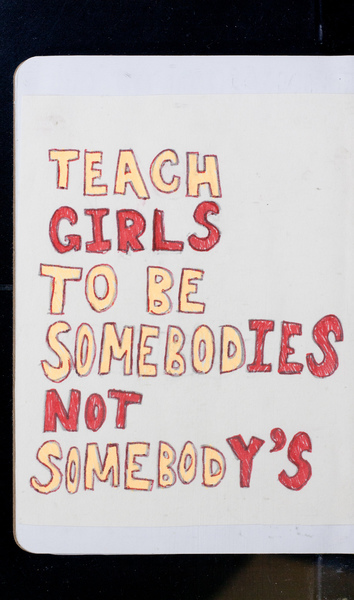 TEACH
GIRLS
TO BE
SOMEBODIES
NOT
SOMEBODY'S